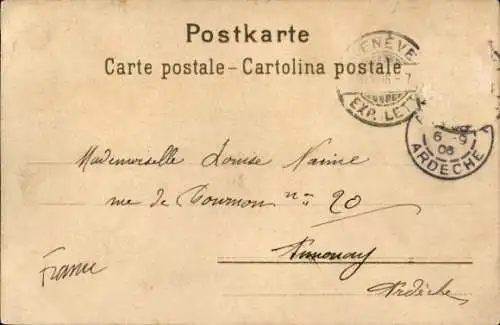 Postkarte
Carte postale – Cartolina postale
GENÈVE
EXP. LET
6 - 9
06
ARDÈCHE
Mademoiselle Louise
rue de Tournon no 20
Annonay
Ardèche
France